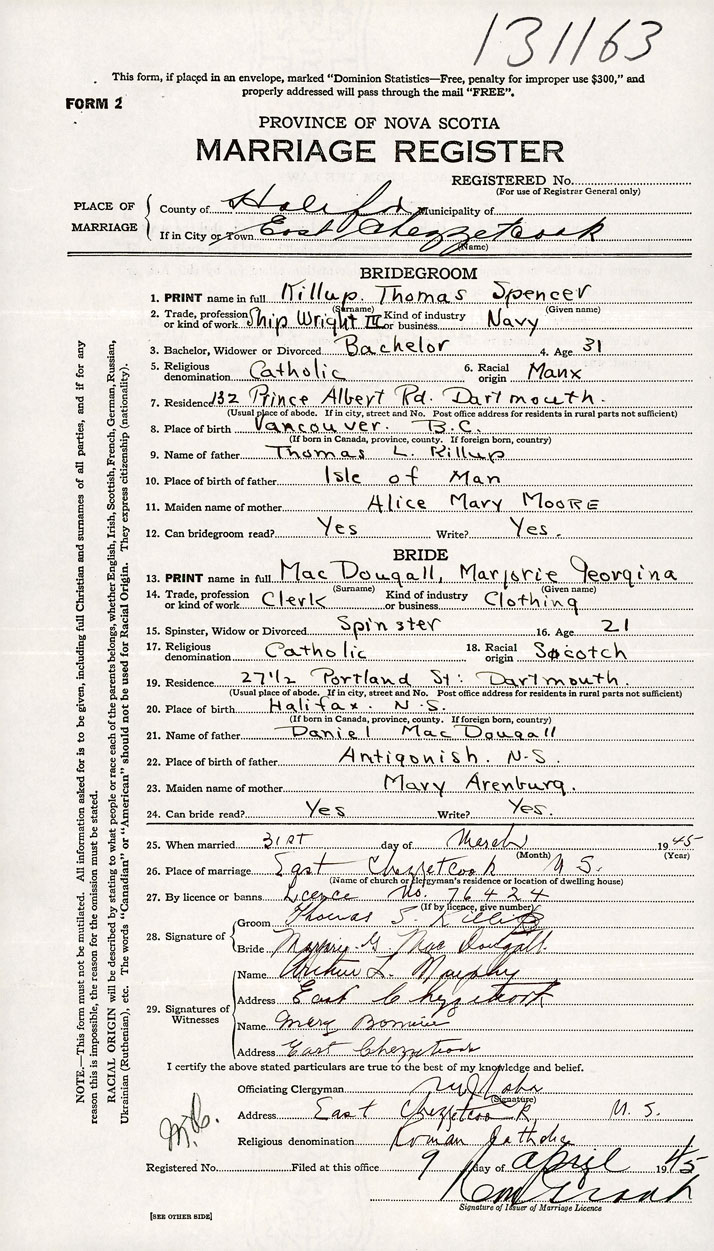 131163
This form, if placed in an envelope, marked "Dominion Statistics—Free, penalty for improper use $300," and
properly addressed will pass through the mail "FREE".
FORM 2
PROVINCE OF NOVA SCOTIA
MARRIAGE REGISTER
REGISTERED No.
(For use of Registrar General only)
PLACE OF MARRIAGE
County of Halifax Municipality of
If in City or Town East Chezzetcook
(Name)
BRIDEGROOM
1. PRINT name in full Killup. Thomas Spencer
(Surname) (Given name)
2. Trade, profession or kind of work Ship Wright IV Kind of industry or business Navy
3. Bachelor, Widower or Divorced Bachelor 4. Age 31
5. Religious denomination Catholic 6. Racial origin Manx
7. Residence 132 Prince Albert Rd. Dartmouth.
(Usual place of abode. If in city, street and No. Post office address for residents in rural parts not sufficient)
8. Place of birth Vancouver. B.C.
(If born in Canada, province, county. If foreign born, country)
9. Name of father Thomas L. Killup
10. Place of birth of father Isle of Man
11. Maiden name of mother Alice Mary MOORE
12. Can bridegroom read? Yes Write? Yes.
BRIDE
13. PRINT name in full MacDougall, Marjorie Georgina
(Surname) (Given name)
14. Trade, profession or kind of work Clerk Kind of industry or business Clothing
15. Spinster, Widow or Divorced Spinster 16. Age 21
17. Religious denomination Catholic 18. Racial origin Scotch
19. Residence 27½ Portland St: Dartmouth.
(Usual place of abode. If in city, street and No. Post office address for residents in rural parts not sufficient)
20. Place of birth Halifax. N.S.
(If born in Canada, province, county. If foreign born, country)
21. Name of father Daniel MacDougall
22. Place of birth of father Antigonish. N.S.
23. Maiden name of mother Mary Arenburg.
24. Can bride read? Yes Write? Yes.
25. When married 31ST day of March 1945
(Month) (Year)
26. Place of marriage East Chezzetcook N S.
(Name of church or clergyman's residence or location of dwelling house)
27. By licence or banns Licence No. 76424
(If by licence, give number)
28. Signature of
Groom Thomas S. Killip
Bride Marjory G. Mac Dougall.
29. Signatures of Witnesses
Name Arthur L. Murphy
Address East Chezzetcook
Name Mary
Address East Chezzetcook
I certify the above stated particulars are true to the best of my knowledge and belief.
Officiating Clergyman
(Signature)
Address East Chezzetcook N. S.
Religious denomination Roman Catholic
Registered No. Filed at this office 9 day of April 1945
Signature of Issuer of Marriage Licence
[SEE OTHER SIDE]
NOTE.—This form must not be mutilated. All information asked for is to be given, including full Christian and surnames of all parties, and if for any
reason this is impossible, the reason for the omission must be stated.
RACIAL ORIGIN will be described by stating to what people or race each of the parents belongs, whether English, Irish, Scottish, French, German, Russian,
Ukrainian (Ruthenian), etc. The words "Canadian" or "American" should not be used for Racial Origin. They express citizenship (nationality).